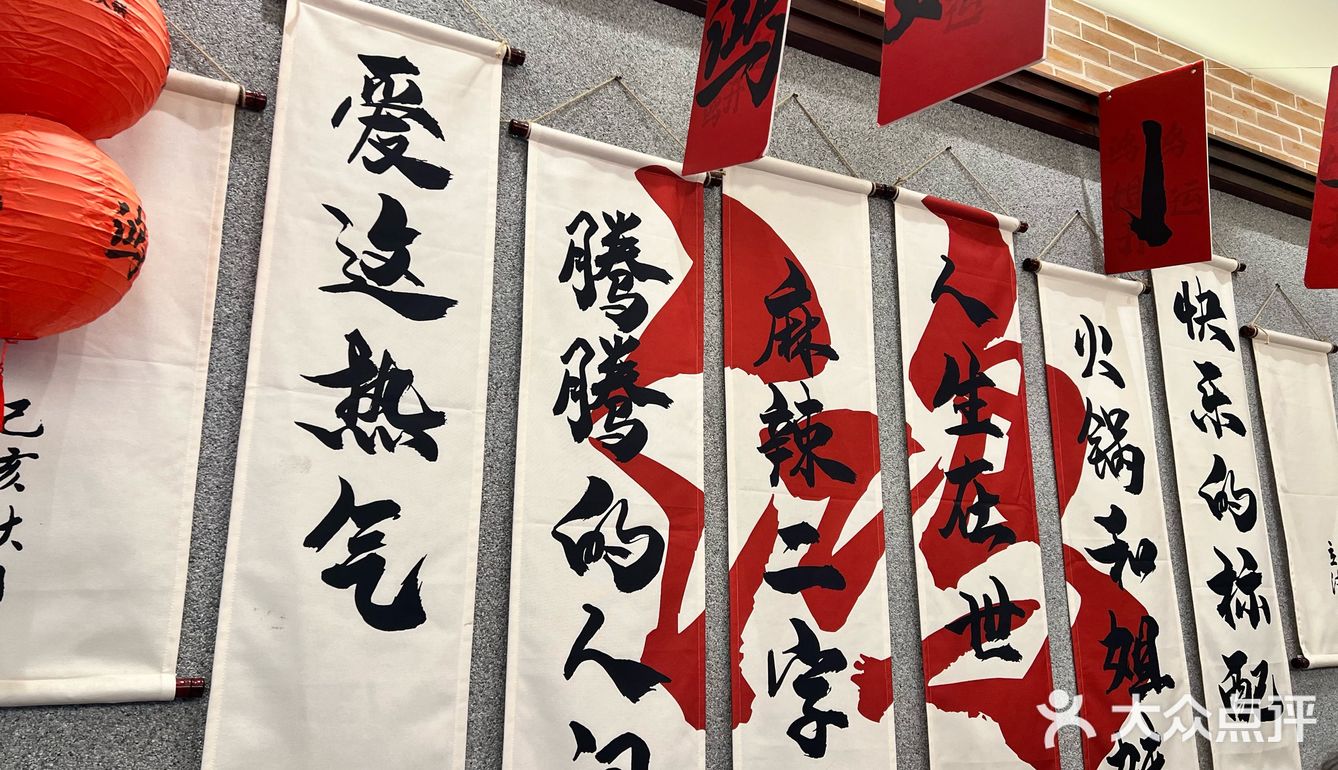 快乐的标配
火锅和姐妹
人生在世
麻辣二字
腾腾的人间
爱这热气
己亥大
鸿
大众点评